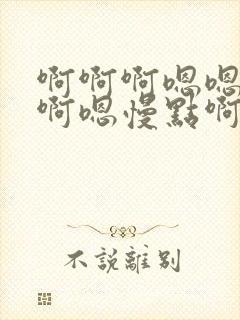 啊啊啊嗯嗯
啊嗯慢點啊
不說離別